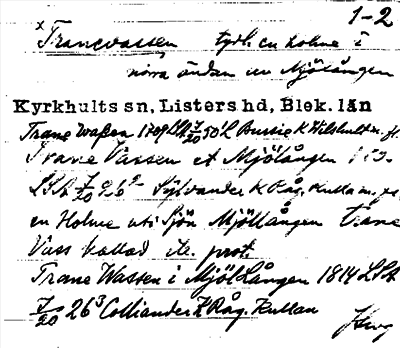 1-2
x Tranevassen, tydl. en holme i
norra ändan av Mjölången
Kyrkhults sn, Listers hd, Blek. län
Trane Waßen 1709 LSA 7/20 50
Trane Vassen et Mjölången
LSA 7/20 26² Sylvander K Råg. Kulla
en Holme uti Sjön Mjöllången Trane
Vass kallad ite. prot.
Trane Wassen i MjölLången 1814 LSA
7/20 26³ Colliander K Råg. Kullan